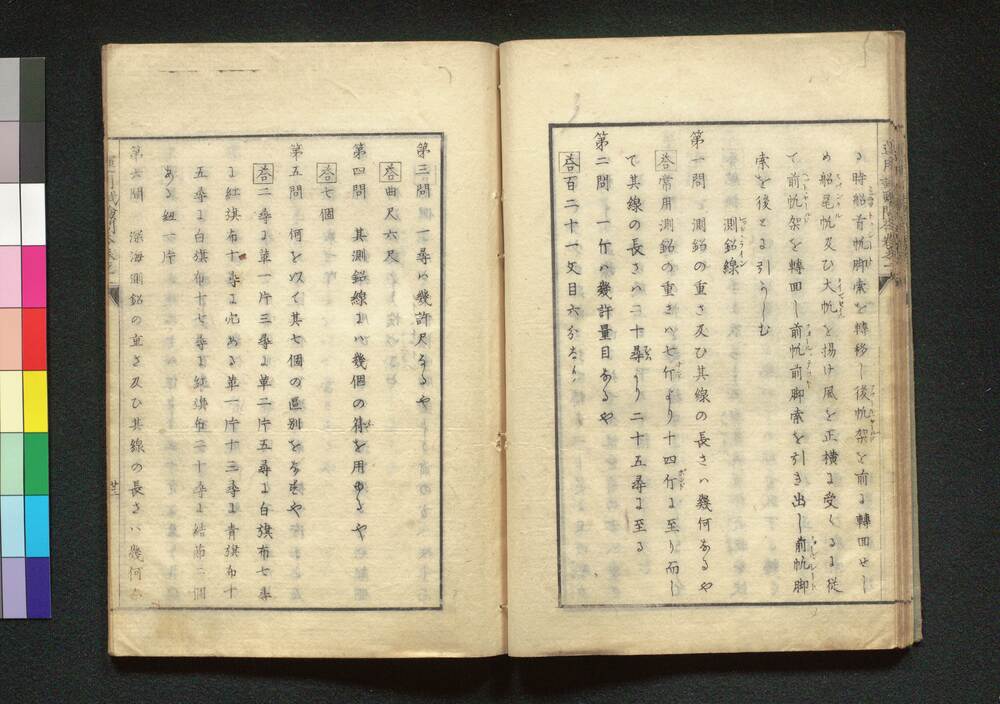 る時船首帆脚索を轉移し後帆架を前に轉回せし
め船尾帆及ひ大帆を揚け風を正横に受くるに従
て前帆架を轉回し前帆前脚索を引き出し前帆脚
索を後とに引かしむ
測鉛線
第一問 測鉛の重さ及ひ其線の長さハ幾何なるや
答 常用測鉛の重さハ七斤より十四斤に至り而し
て其線の長さハ二十尋より二十五尋に至る
第二問 一斤ハ幾許量目なるや
答 百二十一匁目六分なり
第三問 一尋ハ幾許尺なるや
答 曲尺六尺
第四問 其測鉛線にハ幾個の符を用ゆるや
答 七個
第五問 何を以て其七個の區別をなすや
答 二尋に革一片三尋に革二片五尋に白旗布七尋
に紅旗布十尋に穴ある革一片十三尋に青旗布十
五尋に白旗布十七尋に紅旗布二十尋に結節二個
ある紐一片
第六問 深海測鉛の重さ及ひ其線の長さハ幾何な
廿二